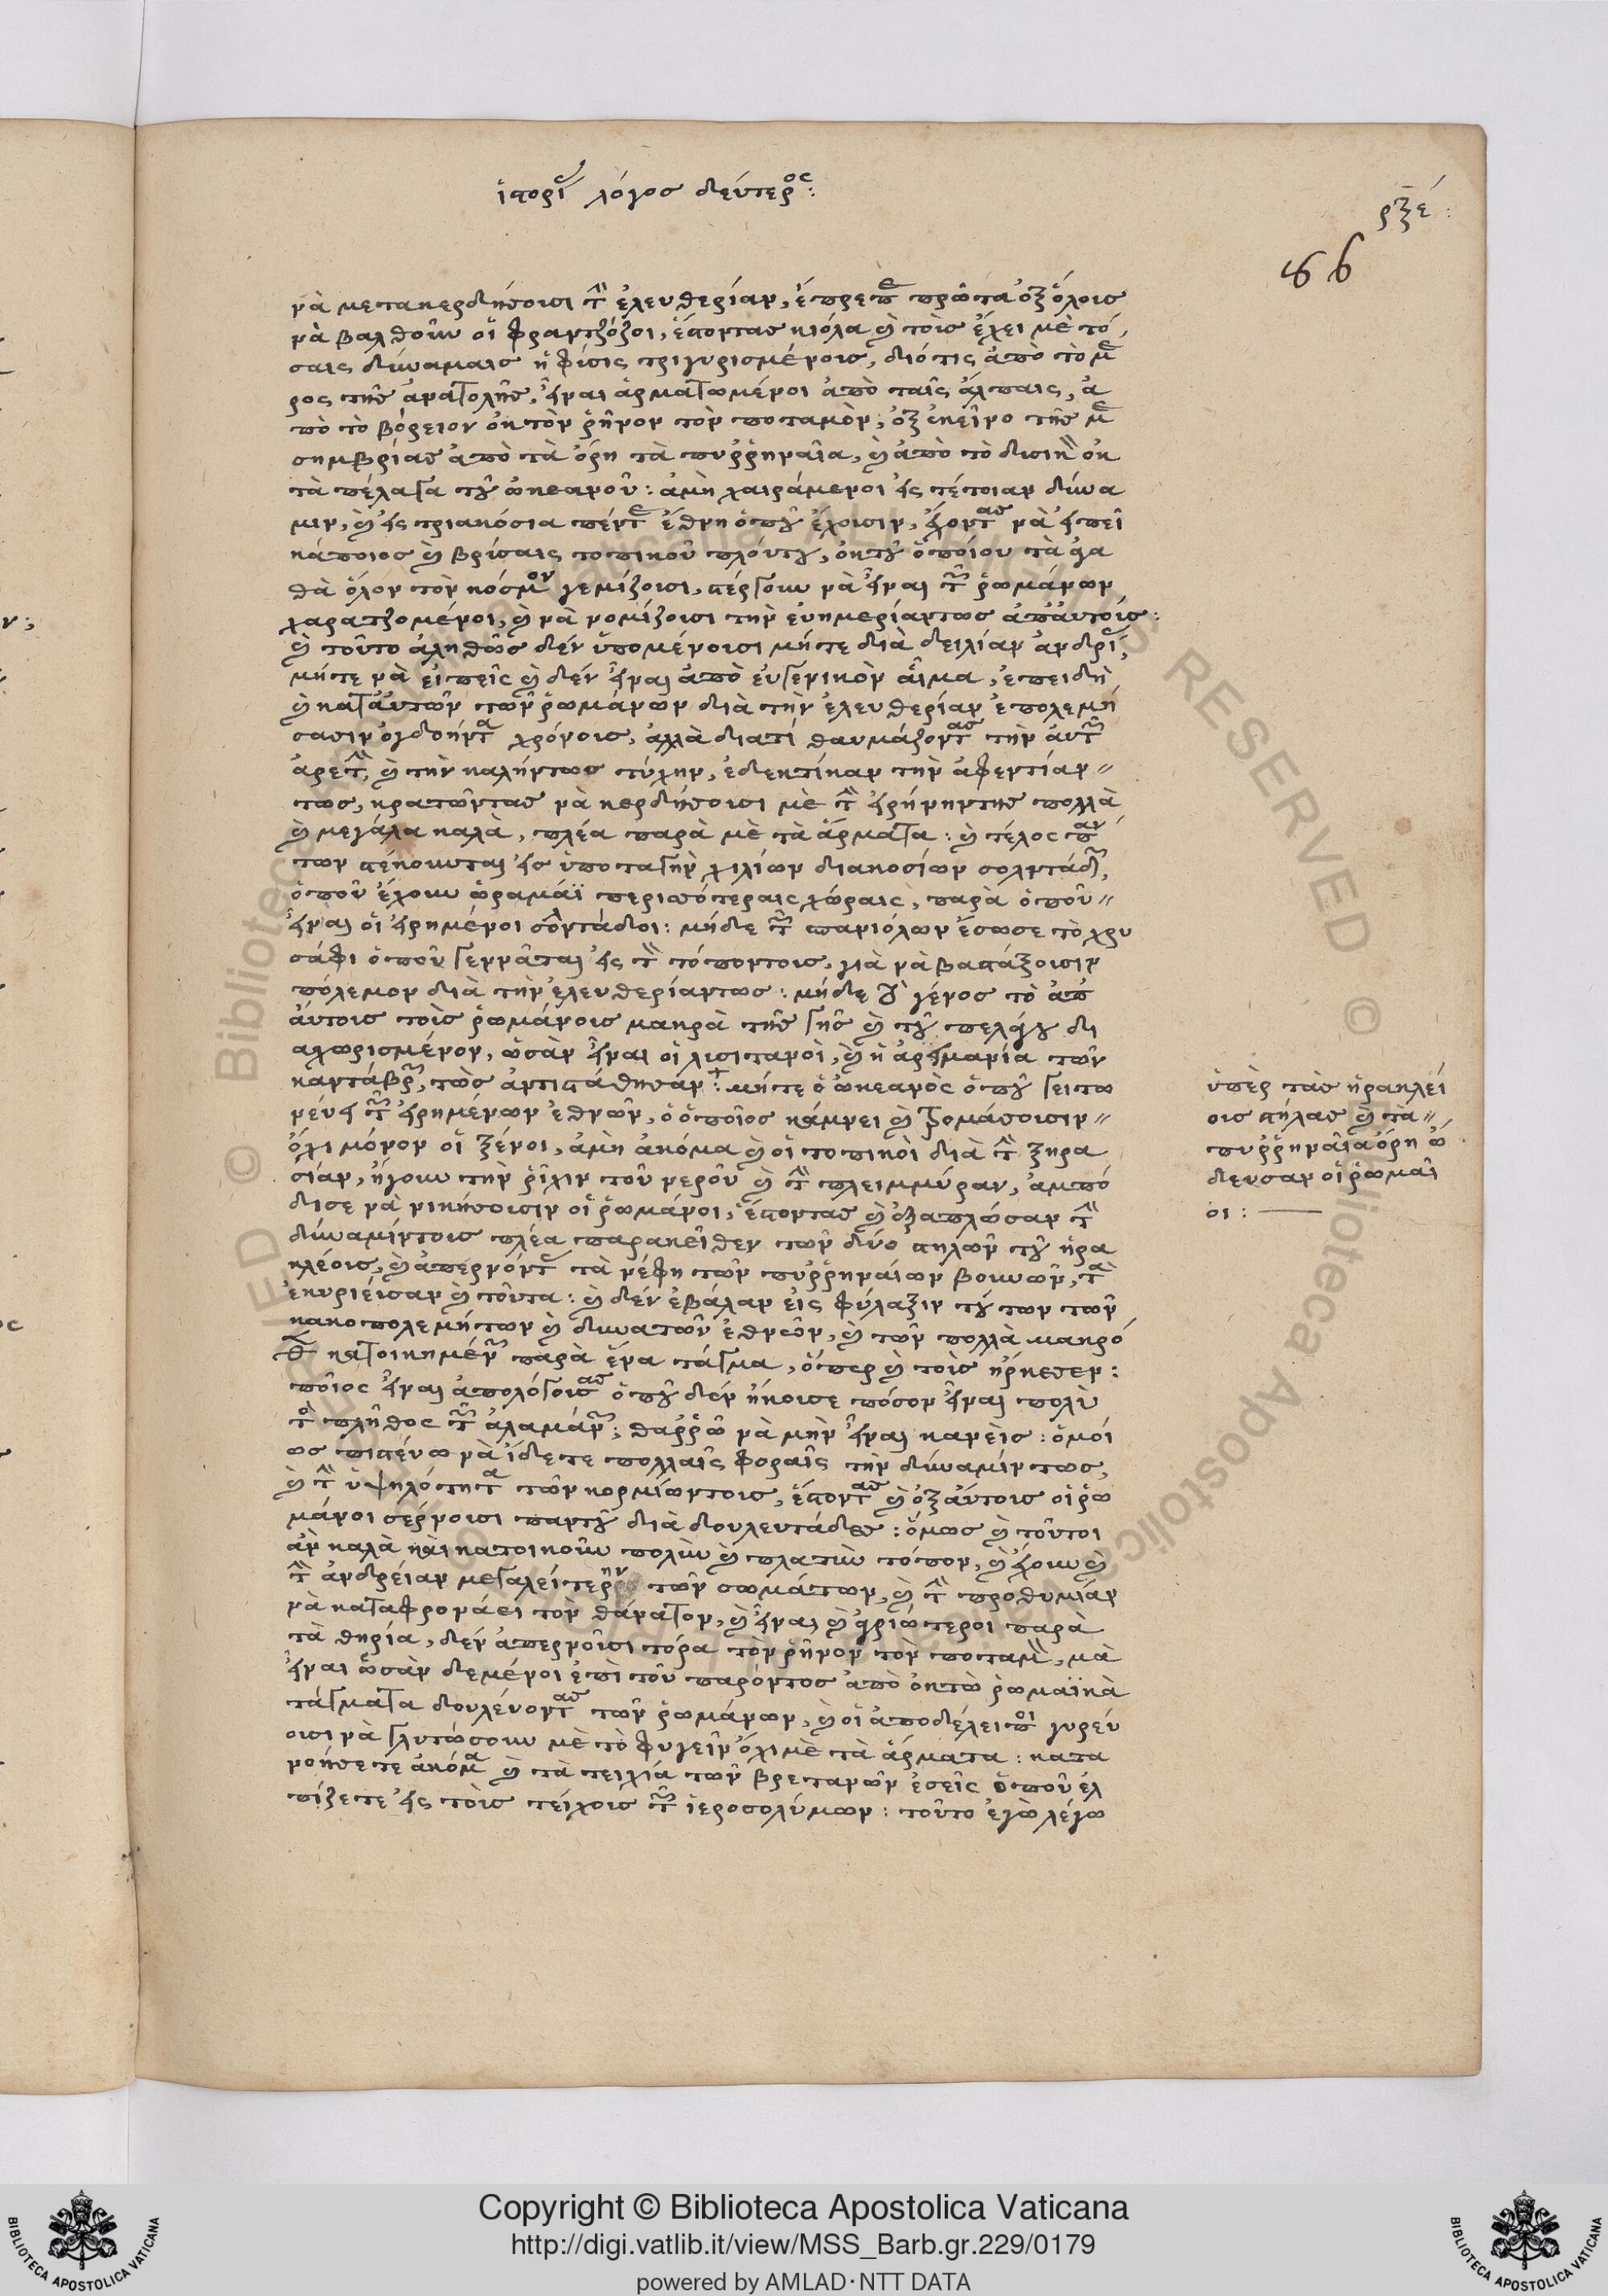 ἱστορί λόγος δεύτερος:
ρξέ:
86
νὰ μετακερδήσοισι τὴν ἐλευθερίαν, ἔπρεπε πρῶτα ὀξ ὅλοις
νὰ βαλθοῦν οἱ φραντζόζοι, ἔστοντας κιόλα καὶ τοὶς ἔχει μὲ τό
σαις δύναμαις ἡ φύσις τριγυρισμένοις, διότις ἀπὸ τὸ μέ
ρος τῆς ἀνατολῆς, εἶναι ἁρματωμένοι ἀπὸ ταῖς ἄλπαις, ἀ
πὸ τὸ βόρειον ὀκ τὸν ῥῆνον τὸν ποταμὸν, ὀξ ἐκεῖνο τῆς με
σημβρίας ἀπὸ τὰ ὄρη τὰ πυῤῥηναῖα, καὶ ἀπὸ τὸ δισικὸν ὀκ
τὰ πέλαγα τοῦ ὠκεανοῦ: ἀμὴ χαιράμενοι εἰς τέτοιαν δύνα
μιν, καὶ εἰς τριακόσια πέντε ἔθνη ὁποῦ ἔχοισιν, ἔχοντας νὰ εἰπεῖ
κάποιος καὶ βρύσαις τοπικοῦ πλούτου, ὀκ τοῦ ὁποίου τὰ ἀγα
θὰ ὅλον τὸν κόσμον γεμίζοισι, στέργουν νὰ εἶναι τῶν ῥωμάνων
χαρατζομένοι, καὶ νὰ νομίζοισι τὴν εὐημερίαντως ἀπ' αὐτοίς:
καὶ τοῦτο ἀληθῶς δέν ὑπομένοισι μήτε διὰ δειλίαν ἀνδρεί,
μήτε νὰ εἰπεῖς καὶ δέν εἶναι ἀπὸ εὐγενικὸν αἷμα, ἐπειδὴ
καὶ κατ' αὐτῶν τῶν ῥωμάνων διὰ τὴν ἐλευθερίαν ἐπολεμή
σασιν ὀγδοήντα χρόνοις, ἀλλὰ διατί θαυμάζοντας τὴν αὐτῶν
ἀρετὴν, καὶ τὴν καλήντως τύχην, ἐδεκτίκαν τὴν ἀφεντίαν
τως, κρατῶντας νὰ κερδήσοισι μὲ τὴν εἰρήνηντης πολλὰ
καὶ μεγάλα καλὰ, πλέα παρὰ μὲ τὰ ἅρματα: καὶ τέλος πάν
των στέκουνται εἰς ὑποταγὴν χιλίων διακοσίων σολντάδων,
ὁποῦ ἔχουν ὡραμάϊ περισσότεραις χώραις, παρὰ ὁποῦ
εἶναι οἱ εἰρημένοι σολντάδοι: μήδε τῶν σπανιόλων ἔσωσε τὸ χρυ
σάφι ὁποῦ γεννᾶται εἰς τὸν τόποντοις, γιὰ νὰ βαστάξοισιν
πόλεμον διὰ τὴν ἐλευθερίαντως: μήδε τὸ γένος τὸ ἀπ
αὐτοις τοὶς ῥωμάνοις μακρὰ τῆς γῆς καὶ τοῦ πελάγου δι
αχωρισμένον, ὡσὰν εἶναι οἱ λισιτανοὶ, καὶ ἡ ἀρειμανία τῶν
καντάβρων, τὼς ἀντιστάθησαν: μήτε ὁ ὠκεανὸς ὁποῦ γειτω
νεύει τῶν εἰρημένων ἐθνῶν, ὁ ὁποῖος κάμνει καὶ τρομάσοισιν
ὄχι μόνον οἱ ξένοι, ἀμὴ ἀκόμα καὶ οἱ τοπικοὶ διὰ τὴν ξηρα
σίαν, ἤγουν τὴν ῥίχιν τοῦ νεροῦ καὶ τὴν πλειμμύραν, ἀμπό
δισε νὰ νικήσοισιν οἱ ῥωμάνοι, ἔστοντας καὶ ὀξαπλώσαν τὴν
δύναμίντοις πλέα παρακεῖθεν τῶν δύο στηλῶν τοῦ ἡρα
κλέοις, καὶ ἀπερνόντας τὰ νέφη τῶν πυῤῥηναίων βουνῶν, τὰ
ἐκυριεῖσαν καὶ τοῦτα: καὶ δέν ἐβάλαν εἰς φύλαξιν τούτων τῶν
κακοπολεμήτων καὶ δυνατῶν ἐθνῶν, καὶ τῶν πολλὰ μακρό
θεν κατοικημένων παρὰ ἕνα τάγμα, ὅπερ καὶ τοὶς ἤρκεσεν:
ποῖος εἶναι ἀπολόγοισας ὁποῦ δέν ἤκοισε πόσον εἶναι πολὺ
τὸ πλῆθος τῶν ἀλαμάνων; θαῤῥῶ νὰ μὴν εἶναι κανεὶς: ὁμοί
ως πιστεύω νὰ ἴδετε πολλαῖς φοραῖς τὴν δύναμίντως,
καὶ τὴν ὑψηλότητα τῶν κορμίωντοις, ἔστοντας καὶ ὀξ αὐτοις οἱ ῥω
μάνοι σέρνοισι παντοῦ διὰ δουλευτάδες: ὅμως καὶ τοῦτοι
ἂν καλὰ καὶ κατοικοῦν πολὺν καὶ πλατὺν τόπον, καὶ ἔχουν καὶ
τὴν ἀνδρείαν μεγαλείτερην τῶν σωμάτων, καὶ τὴν προθυμίαν
νὰ καταφρονάει τὸν θάνατον, καὶ εἶναι καὶ ἀγριώτεροι παρὰ
τὰ θηρία, δέν ἀπερνοῖσι τόρα τὸν ῥῆνον τὸν ποταμὸν, μὰ
εἶναι ὡσὰν δεμένοι ἐπὶ τοῦ παρόντος ἀπὸ ὀκτὼ ῥωμαϊκὰ
τάγματα δουλεύοντας τῶν ῥωμάνων, καὶ οἱ ἀποδέλειποι γυρεύ
οισι νὰ γλυτώσουν μὲ τὸ φυγεῖν ὄχι μὲ τὰ ἅρματα: κατα
νοήσετε ἀκόμα καὶ τὰ τειχία τῶν βρετανῶν ἐσεῖς ὁποῦ ἐλ
πίζετε εἰς τοὶς τείχοις τῶν ἱεροσολύμων: τοῦτο ἐγὼ λέγω
ὑπὲρ τὰς ἡρακλεί
οις στήλας καὶ τὰ
πυῤῥηναῖα ὄρη ὥ
δευσαν οἱ ῥωμαῖ
οι:
Copyright © Biblioteca Apostolica Vaticana
http://digi.vatlib.it/view/MSS_Barb.gr.229/0179
powered by AMLAD·NTT DATA